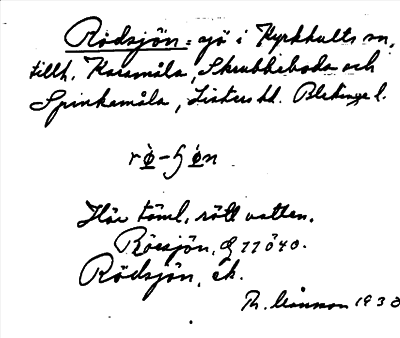 Rödsjön = sjö i Kyrkhults sn,
tillh. Karsmåla, Skrubbeboda och
Spinkamåla, Listers hd. Blekinge l.
rø̀-ɧø̀n
Har töml. rött vatten.
Rösjön, GS 11040.
Rödsjön, ek.
Th. Månsson 1930